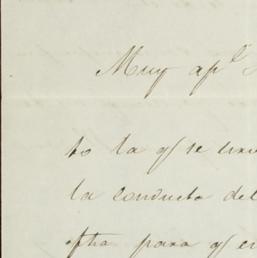 Muy ap.
to la q/ se
la conducta del
para q/ en